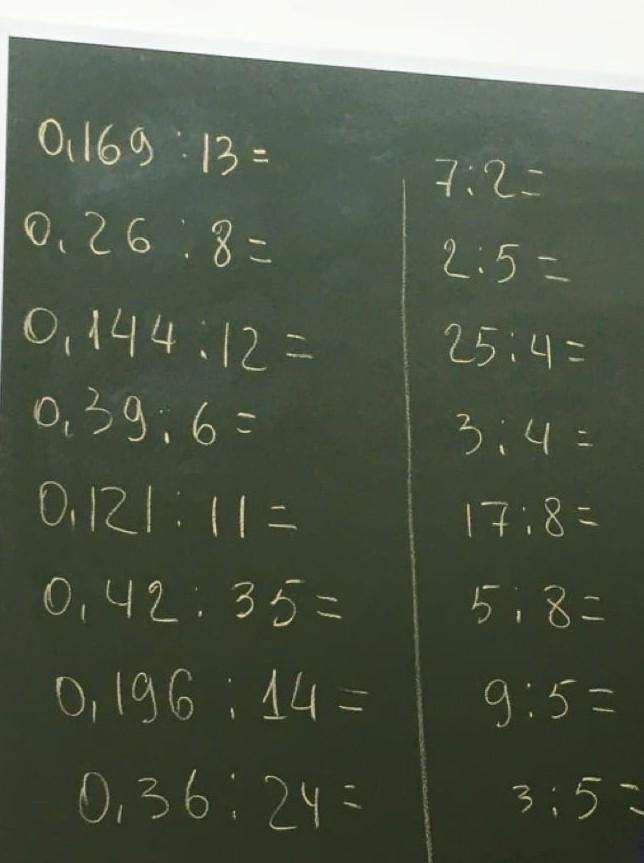 0,169 : 13 =
0,26 : 8 =
0,144 : 12 =
0,39 : 6 =
0,121 : 11 =
0,42 : 35 =
0,196 : 14 =
0,36 : 24 =
7 : 2 =
2 : 5 =
25 : 4 =
3 : 4 =
17 : 8 =
5 : 8 =
9 : 5 =
3 : 5 =